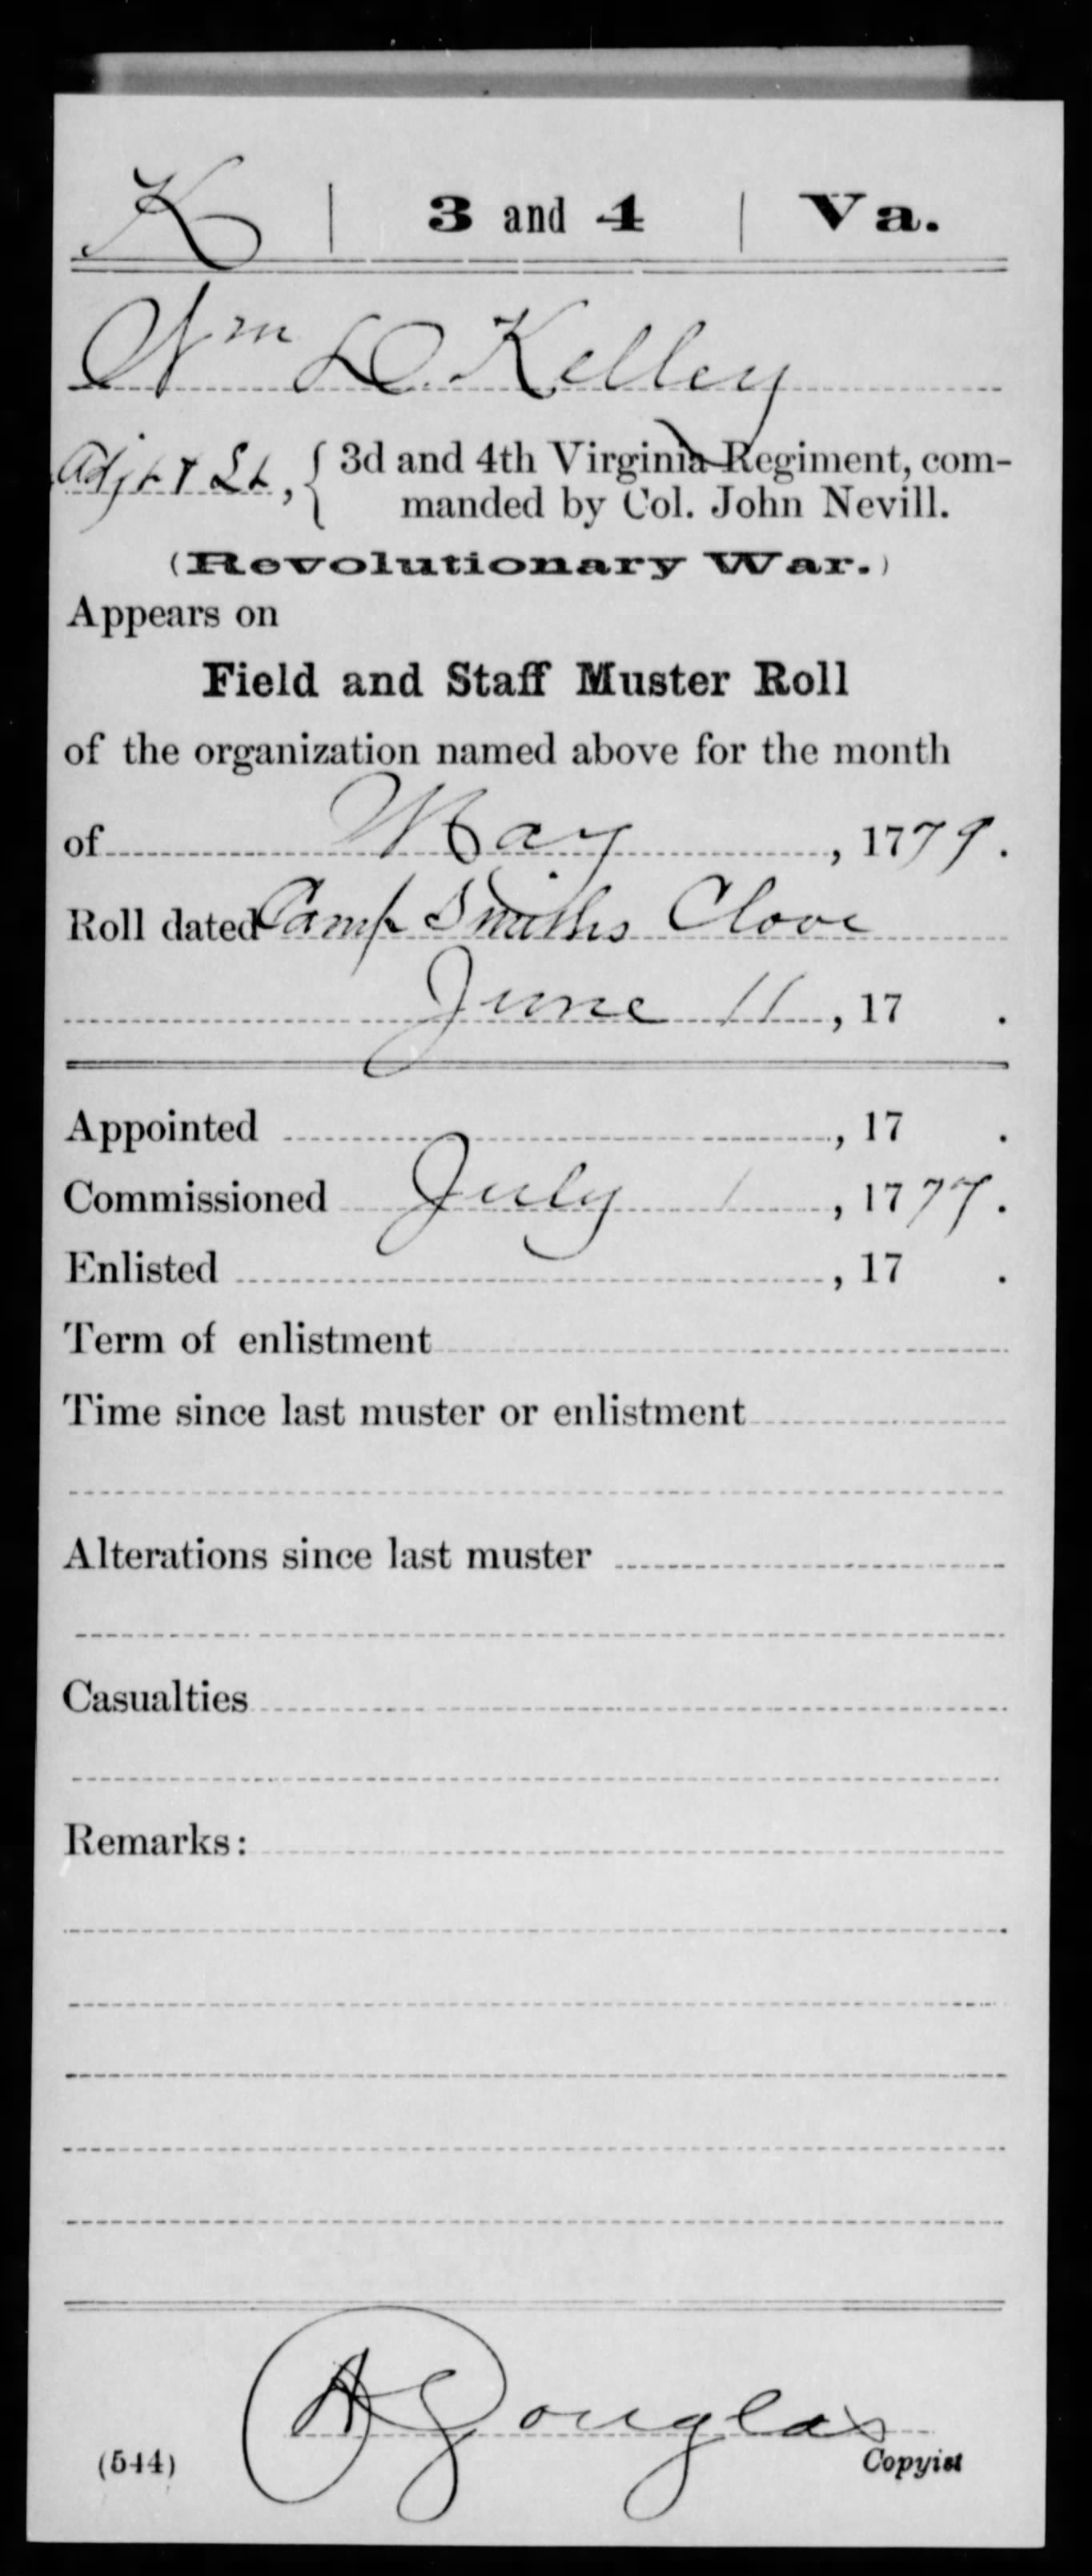 K | 3 and 4 | Va.
Wm D. Kelley
Adjt & Lt, { 3d and 4th Virginia Regiment, com-
manded by Col. John Nevill.
(Revolutionary War.)
Appears on
Field and Staff Muster Roll
of the organization named above for the month
of May, 1779.
Roll dated Camp Smiths Clove
June 11, 17 .
Appointed , 17 .
Commissioned July 1, 1777.
Enlisted , 17 .
Term of enlistment
Time since last muster or enlistment
Alterations since last muster
Casualties
Remarks:
A Douglas
(544) Copyist